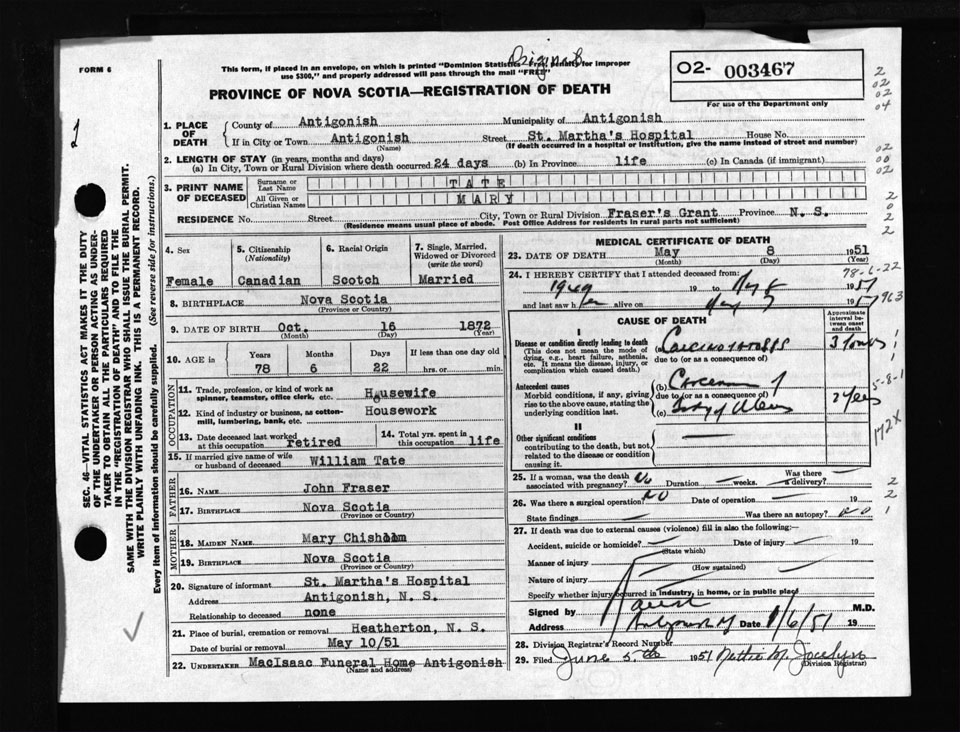 FORM 6
Original
This form, if placed in an envelope, on which is printed "Dominion Statistics Free, Penalty for Improper
use $300," and properly addressed will pass through the mail "FREE"
PROVINCE OF NOVA SCOTIA—REGISTRATION OF DEATH
02- 003467
For use of the Department only
2
02
02
04
1. PLACE OF DEATH
County of Antigonish Municipality of Antigonish
If in City or Town Antigonish Street St. Martha's Hospital House No.
(Name) (If death occurred in a hospital or institution, give the name instead of street and number)
2. LENGTH OF STAY (in years, months and days)
(a) In City, Town or Rural Division where death occurred 24 days (b) In Province life (c) In Canada (if immigrant)
02
00
02
3. PRINT NAME OF DECEASED
Surname or Last Name TATE
All Given or Christian Names MARY
RESIDENCE No. Street City, Town or Rural Division Fraser's Grant Province N. S.
(Residence means usual place of abode. Post Office Address for residents in rural parts not sufficient)
2
0
2
2
4. Sex
Female
5. Citizenship
(Nationality)
Canadian
6. Racial Origin
Scotch
7. Single, Married, Widowed or Divorced
(write the word)
Married
8. BIRTHPLACE Nova Scotia
(Province or Country)
9. DATE OF BIRTH Oct. 16 1872
(Month) (Day) (Year)
10. AGE in
Years Months Days If less than one day old
78 6 22 hrs. or min.
OCCUPATION
11. Trade, profession, or kind of work as
spinner, teamster, office clerk, etc. Housewife
12. Kind of industry or business, as cotton-
mill, lumbering, bank, etc. Housework
13. Date deceased last worked
at this occupation retired
14. Total yrs. spent in
this occupation life
15. If married give name of wife
or husband of deceased William Tate
FATHER
16. NAME John Fraser
17. BIRTHPLACE Nova Scotia
(Province or Country)
MOTHER
18. MAIDEN NAME Mary Chisholm
19. BIRTHPLACE Nova Scotia
(Province or Country)
20. Signature of informant St. Martha's Hospital
Address Antigonish, N. S.
Relationship to deceased none
21. Place of burial, cremation or removal Heatherton, N. S.
Date of burial or removal May 10/51
22. UNDERTAKER MacIsaac Funeral Home Antigonish
(Name and address)
MEDICAL CERTIFICATE OF DEATH
23. DATE OF DEATH May 8 1951
(Month) (Day) (Year)
78-6-22
24. I HEREBY CERTIFY that I attended deceased from:
1949 19 to May 8 1951
and last saw her alive on May 7 1951
963
CAUSE OF DEATH
Approximate interval between onset and death
I
Disease or condition directly leading to death
(This does not mean the mode of
dying, e.g., heart failure, asthenia,
etc. It means the disease, injury, or
complication which caused death.)
(a)
due to (or as a consequence of)
Antecedent causes
Morbid conditions, if any, giving
rise to the above cause, stating the
underlying condition last.
(b) Carcinoma of
due to (or as a consequence of)
(c) Body of Uterus
2 years
5-8-1
172X
II
Other significant conditions
contributing to the death, but not
related to the disease or condition
causing it.
25. If a woman, was the death
associated with pregnancy? No Duration weeks. Was there a delivery?
26. Was there a surgical operation? NO Date of operation 19
State findings Was there an autopsy? no
27. If death was due to external causes (violence) fill in also the following:—
Accident, suicide or homicide? Date of injury 19
(State which)
Manner of injury
(How sustained)
Nature of injury
Specify whether injury occurred in industry, in home, or in public place
Signed by M.D.
Address Antigonish Date 1/6/51 19
28. Division Registrar's Record Number
29. Filed June 5th 1951 Nettie M. Jocelyn
(Division Registrar)
SEC. 46—VITAL STATISTICS ACT MAKES IT THE DUTY
OF THE UNDERTAKER OR PERSON ACTING AS UNDER-
TAKER TO OBTAIN ALL THE PARTICULARS REQUIRED
IN THE "REGISTRATION OF DEATH" AND TO FILE THE
SAME WITH THE DIVISION REGISTRAR WHO SHALL ISSUE THE BURIAL PERMIT.
WRITE PLAINLY WITH UNFADING INK. THIS IS A PERMANENT RECORD.
Every item of information should be carefully supplied. (See reverse side for instructions.)